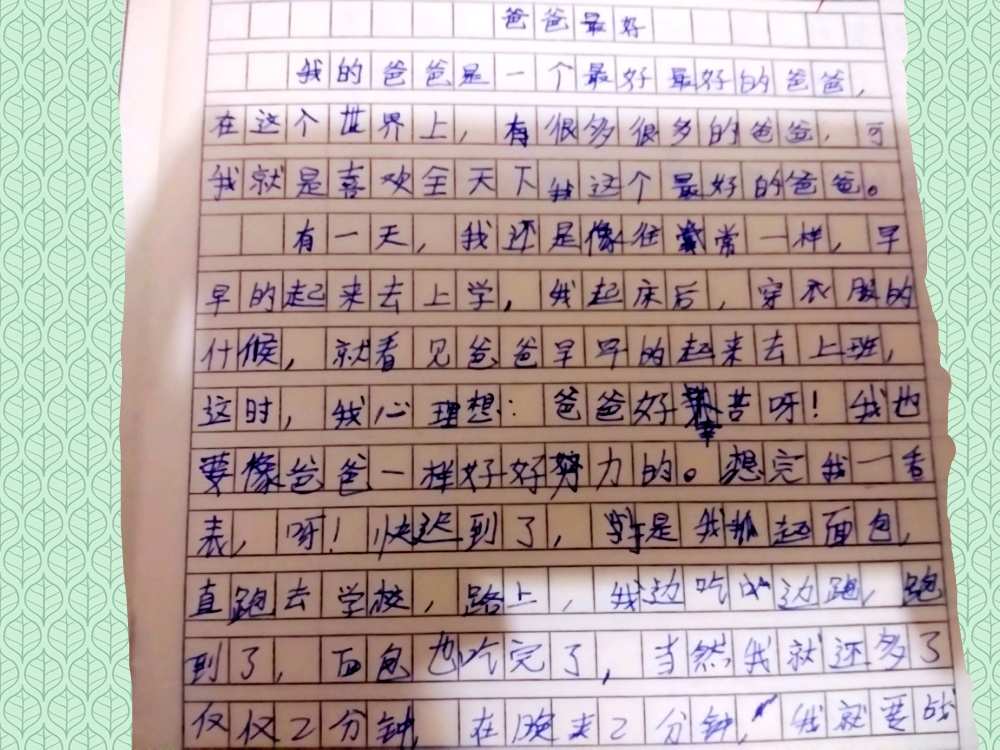 爸爸最好
我的爸爸是一个最好最好的爸爸,
在这个世界上,有很多很多的爸爸,可
我就是喜欢全天下我这个最好的爸爸。
有一天,我还是像往常一样,早
早的起来去上学,我起床后,穿衣服的
什候,就看见爸爸早早的起来去上班,
这时,我心理想:爸爸好辛苦呀!我也
要像爸爸一样好好努力的。想完我一看
表,呀!快迟到了,于是我抓起面包,
直跑去学校,路上,我边吃边跑,跑
到了,面包也吃完了,当然我就还多了
仅仅2分钟,在晚来2分钟,我就要